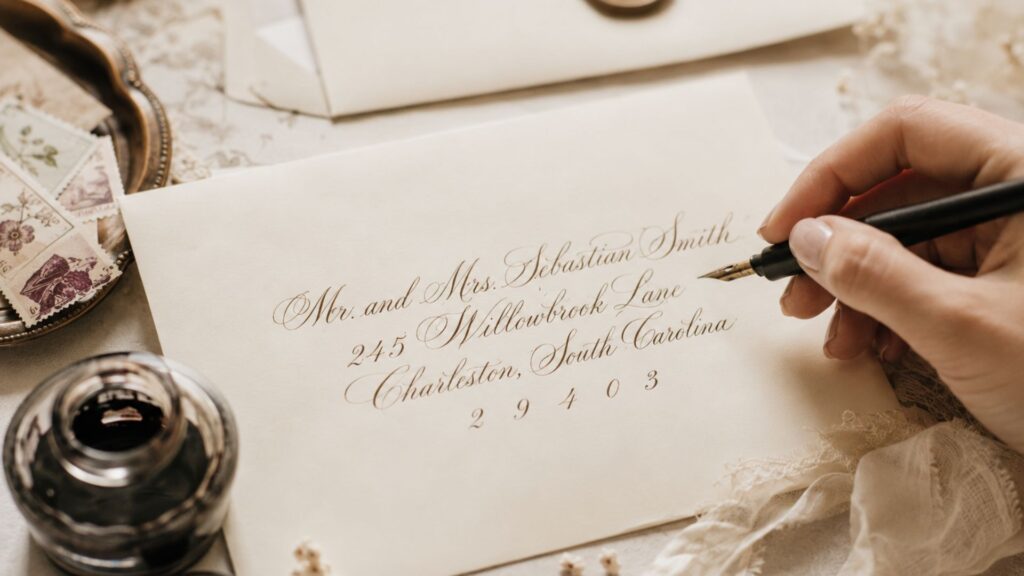 Mr. and Mrs. Sebastian Smith
245 Willowbrook Lane
Charleston, South Carolina
2 9 4 0 3